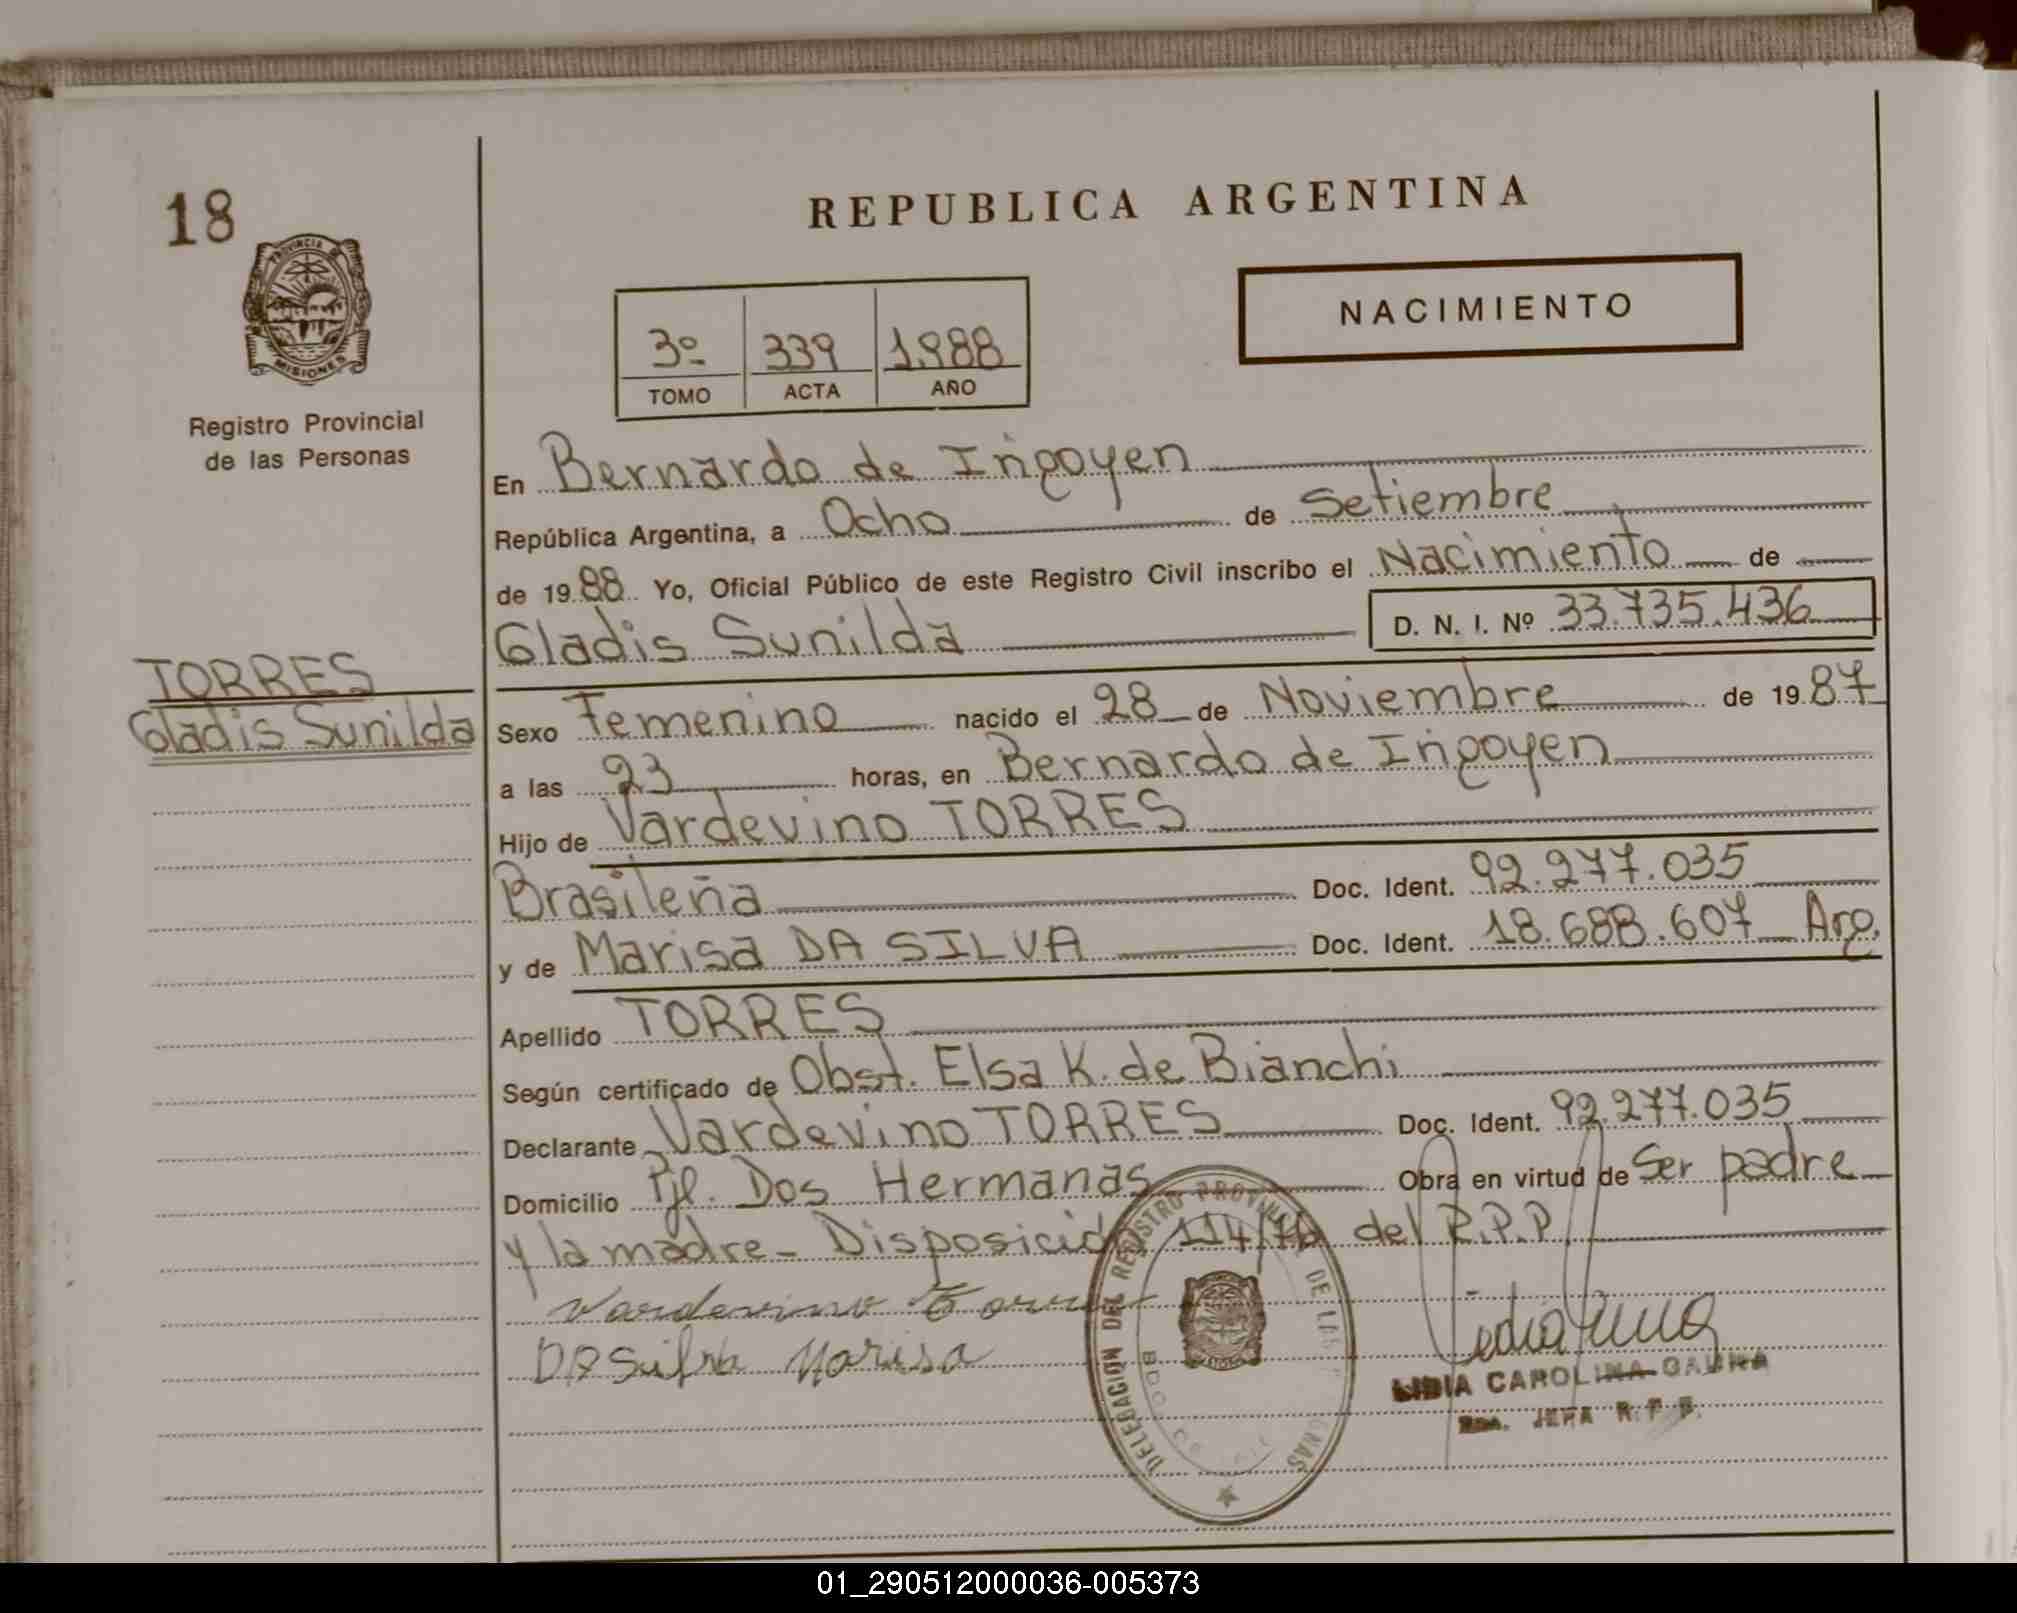 18
PROVINCIA DE
MISIONES
Registro Provincial
de las Personas
TORRES
Gladis Sunilda
REPUBLICA ARGENTINA
3º 339 1988
TOMO ACTA AÑO
NACIMIENTO
En Bernardo de Irigoyen
República Argentina, a Ocho de Setiembre
de 1988 Yo, Oficial Público de este Registro Civil inscribo el Nacimiento de
Gladis Sunilda D. N. I. Nº 33.735.436
Sexo Femenino nacido el 28 de Noviembre de 1987
a las 23 horas, en Bernardo de Irigoyen
Hijo de Vardevino TORRES
Brasileña Doc. Ident. 92.277.035
y de Marisa DA SILVA Doc. Ident. 18.688.607 Arg.
Apellido TORRES
Según certificado de Obst. Elsa K. de Bianchi
Declarante Vardevino TORRES Doc. Ident. 92.277.035
Domicilio Pje. Dos Hermanas Obra en virtud de Ser padre
y la madre - Disposición 114/ del R.P.P.
Vardevino Torres
DA Silva Marisa
DELEGACIÓN DEL REGISTRO DE LAS
LIDIA CAROLINA
JEFA R.P.P.
01_290512000036-005373